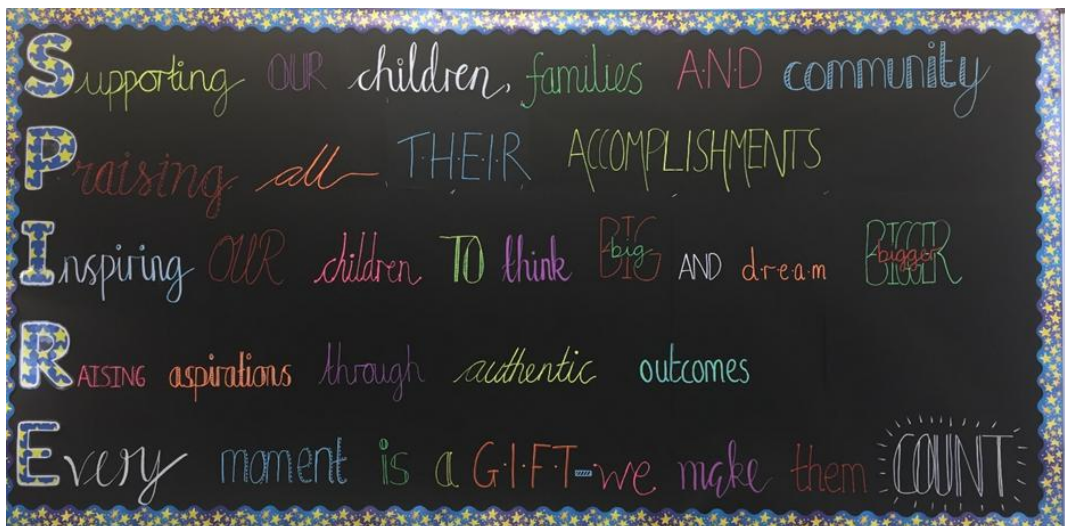 Supporting OUR children, families A·N·D community
Praising all T·H·E·I·R ACCOMPLISHMENTS
Inspiring OUR children TO think BIG big AND d·r·e·a·m BIGGER bigger
RAISING aspirations through authentic outcomes
Every moment is a G·I·F·T-we make them COUNT